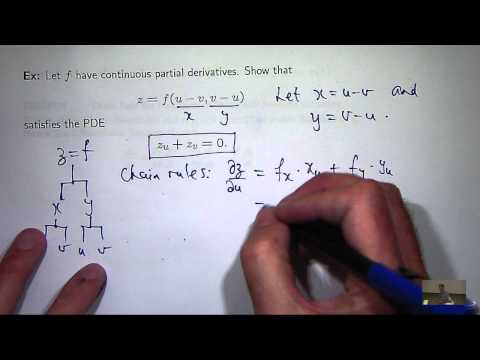 Ex: Let f have continuous partial derivatives. Show that
z = f(u − v, v − u)
x y
Let x = u-v and
y = v-u.
satisfies the PDE
z_u + z_v = 0.
z = f
x y
v u v
Chain rules: ∂z/∂u = f_x · x_u + f_y · y_u
=